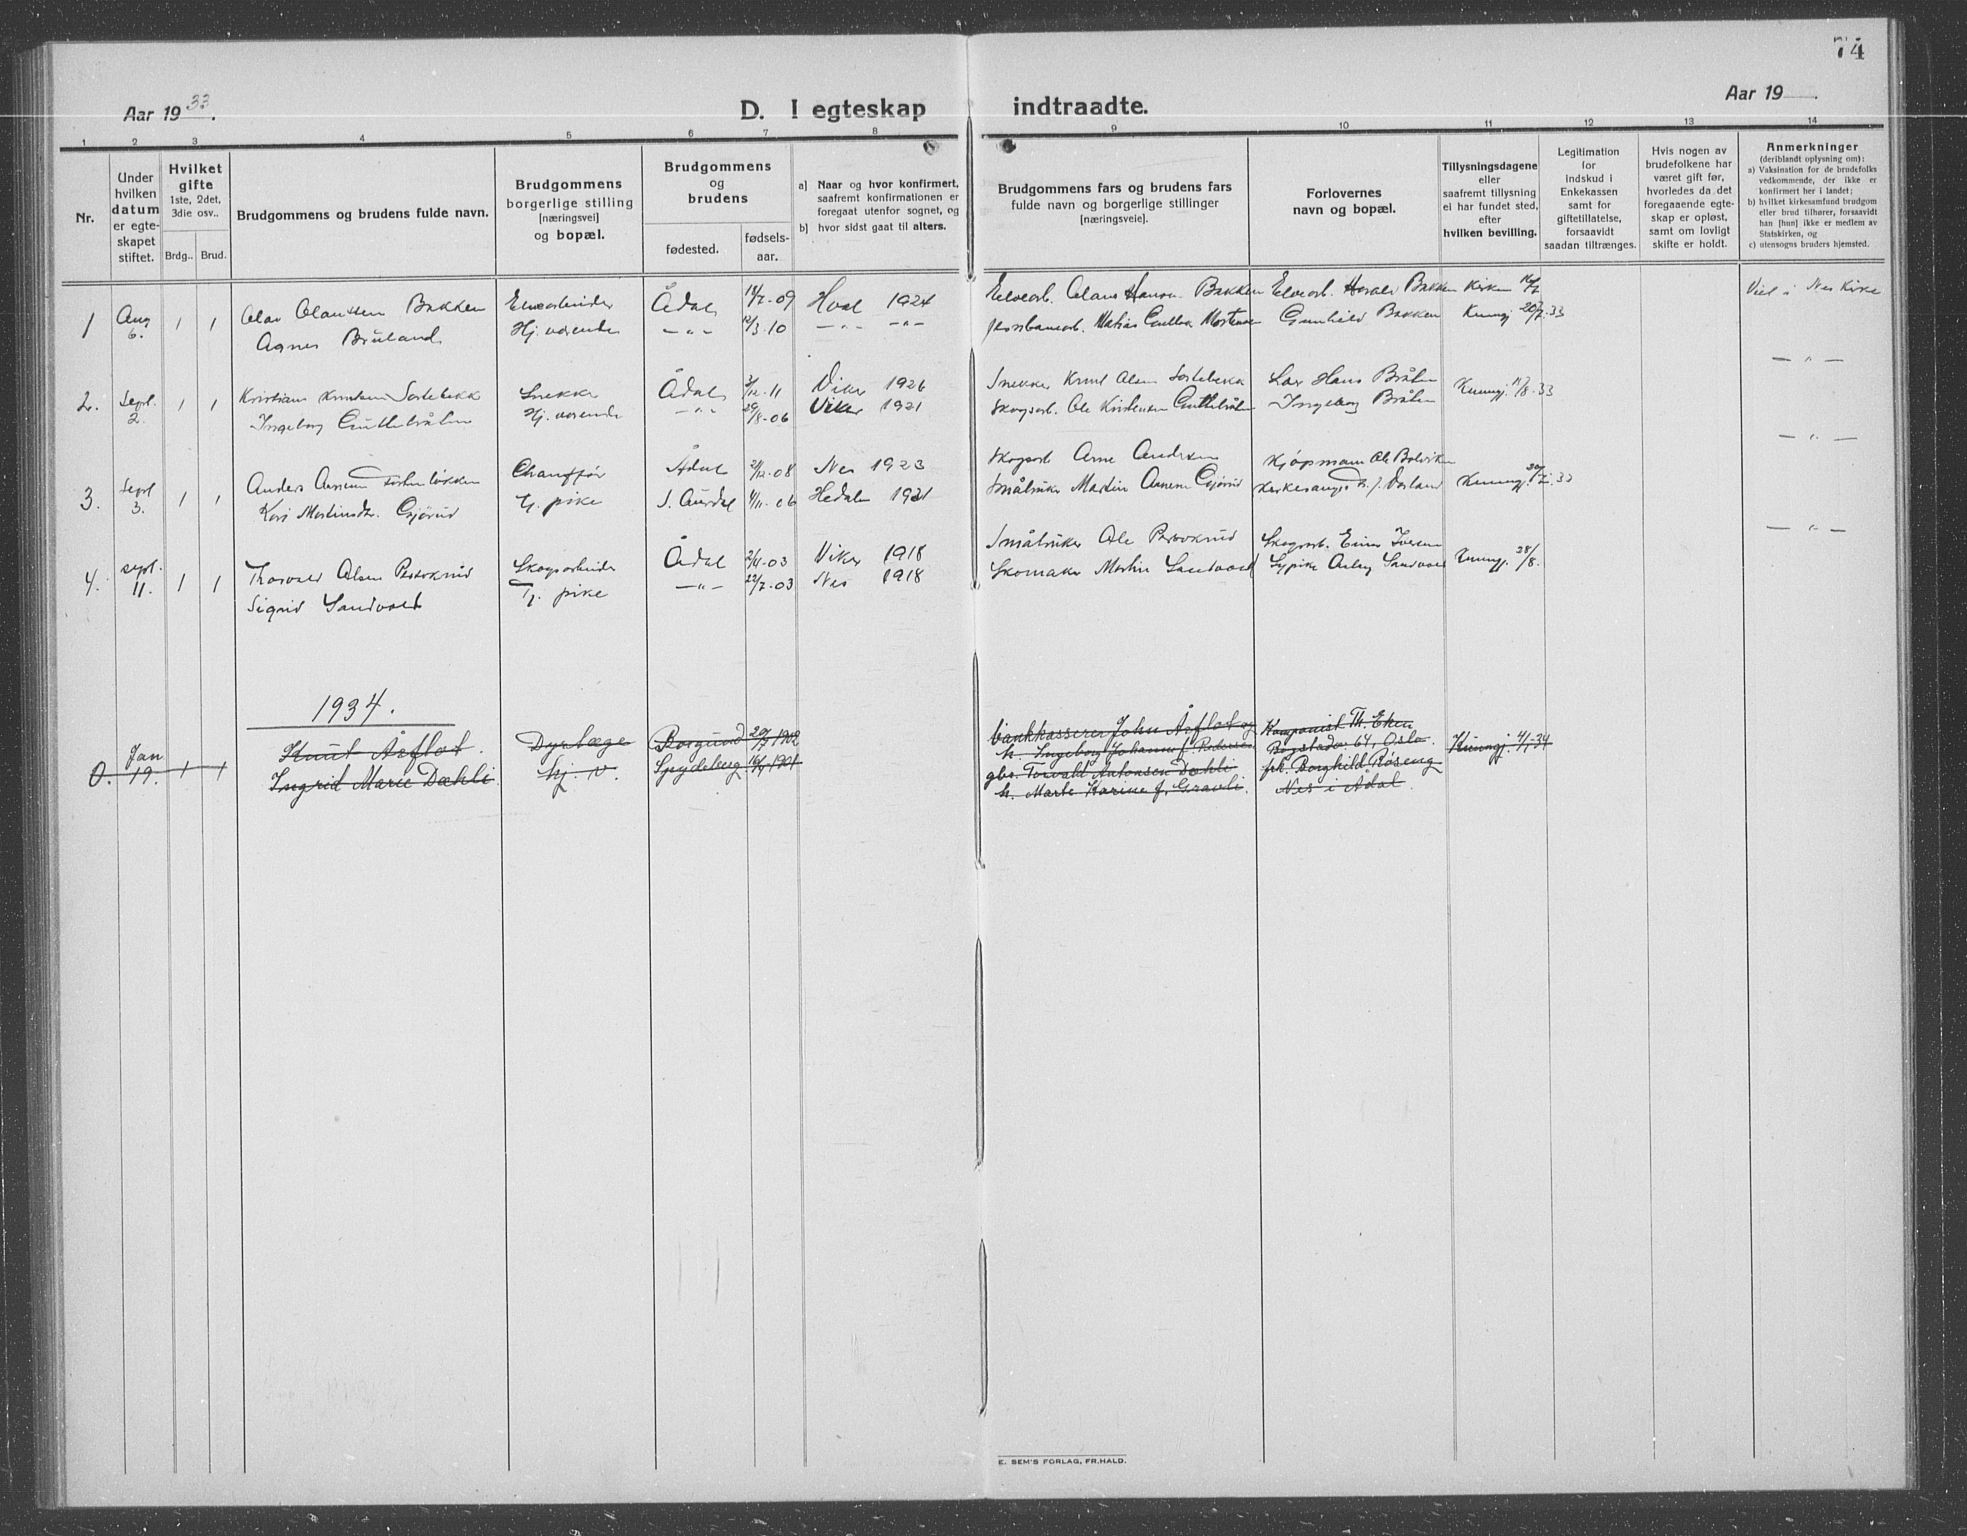 74
Aar 1933.
D. I egteskap indtraadte.
Aar 19 .
1 2 3 4 5 6 7 8 9 10 11 12 13 14
Nr.
Under
hvilken
datum
er egte-
skapet
stiftet.
Hvilket
gifte
1ste, 2det,
3die osv..
Brdg.. Brud.
Brudgommens og brudens fulde navn.
Brudgommens
borgerlige stilling
[næringsvei]
og bopæl.
Brudgommens
og
brudens
fødested.
fødsels-
aar.
a] Naar og hvor konfirmert,
saafremt konfirmationen er
foregaat utenfor sognet, og
b] hvor sidst gaat til alters.
Brudgommens fars og brudens fars
fulde navn og borgerlige stillinger
[næringsveie].
Forlovernes
navn og bopæl.
Tillysningsdagene
eller
saafremt tillysning
ei har fundet sted,
efter
hvilken bevilling.
Legitimation
for
indskud i
Enkekassen
samt for
giftetillatelse,
forsaavidt
saadan tiltrænges.
Hvis nogen av
brudefolkene har
været gift før,
hvorledes da det
foregaaende egte-
skap er opløst,
samt om lovligt
skifte er holdt.
Anmerkninger
(deriblandt oplysning om):
a) Vaksination for de brudefolks
vedkommende, der ikke er
konfirmert her i landet;
b) hvilket kirkesamfund brudgom
eller brud tilhører, forsaavidt
han [hun] ikke er medlem av
Statskirken, og
c) utensogns bruders hjemsted.
1 Aug 6. 1 1 Olav Olausen Bakken Elvearbeider Ådal 09 Hval 1924 Elvearb. Olaus Hansen Bakken Elvearb. Harald Bakken Kirken Viet i Nes Kirke
Agnes Bruland Hj. værende —„— 12/3-10 —„— —„— Mathias Mortensen Gunhild Bakken Kunngj 20/7.33
2. Sept. 2. 1 1 Kristian Knutsen Sørtebekk Snekker Ådal 3/12-11 Viker 1926 Snekker Knut Olsen Sørtebekk Hans Bråten Kunngj. 17/8-33 —„—
Ingeborg Gutthebråten Hj. værende —„— 29/8-06 Viker 1921 Skogsarb. Ole Kristensen Gutthebråten Ingeborg Bråten
3. Sept 3. 1 1 Anders Arnesen Chauffør Ådal 08 Nes 1923 Skogsarb Arne Andersen Kjøpmann Ole Kunngj 33 —„—
Kari Martinsdtr. Gjørud Tj. pike S. Aurdal 4/11-06 Hedalen 1921 Småbruker Martin Arnesen Gjørud
4. sept. 11. 1 1 Thorvald Olsen Skogsarbeider Ådal 2/4-03 Viker 1918 Småbruker Ole Skogsarb. Einar Iversen Kunngj. 28/8. —„—
Sigrid Sandvold Tj. pike —„— 22/7-03 Nes 1918 Skomaker Martin Sandvold Sypike Aslaug Sandvold
1934.
0. Jan 19. 1 1 Knut Årflot. Dyrlæge Borgund 29/7 1902 bankkasserer John Årflot og Komponist Th. Eken Kunngj. 4/1-34
Ingrid Marie Dæhli. hj. v. Spydeberg 1901 h. Ingeborg Johanne f. Pedersen Bogstadv. 64, Oslo.
gbr. Torvald Antonsen Dæhli frk. Borghild Roseng
h. Marte Karine f. Gravli. Nes i Ådal.
E. SEM'S FORLAG, FR.HALD.